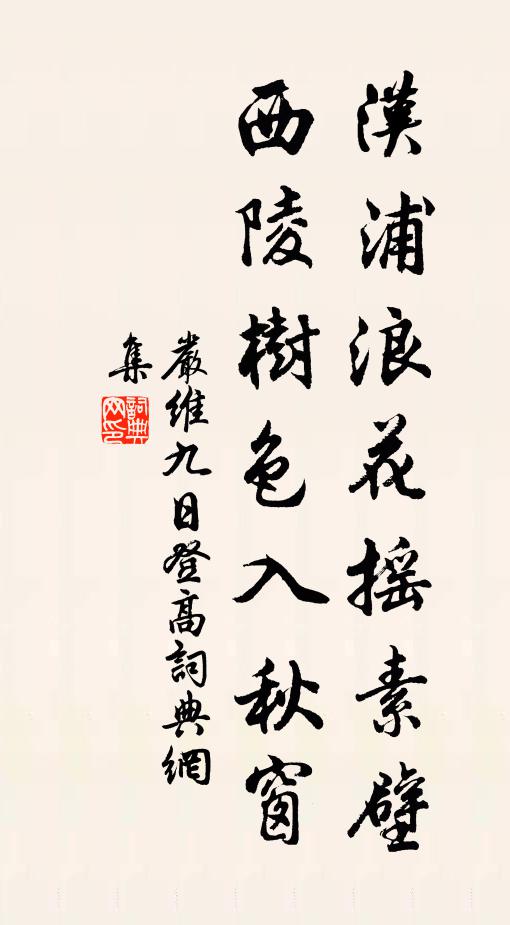 漢浦浪花摇素壁
西陵樹色入秋窗
嚴維九日登高詞典網
集
詞典
网印